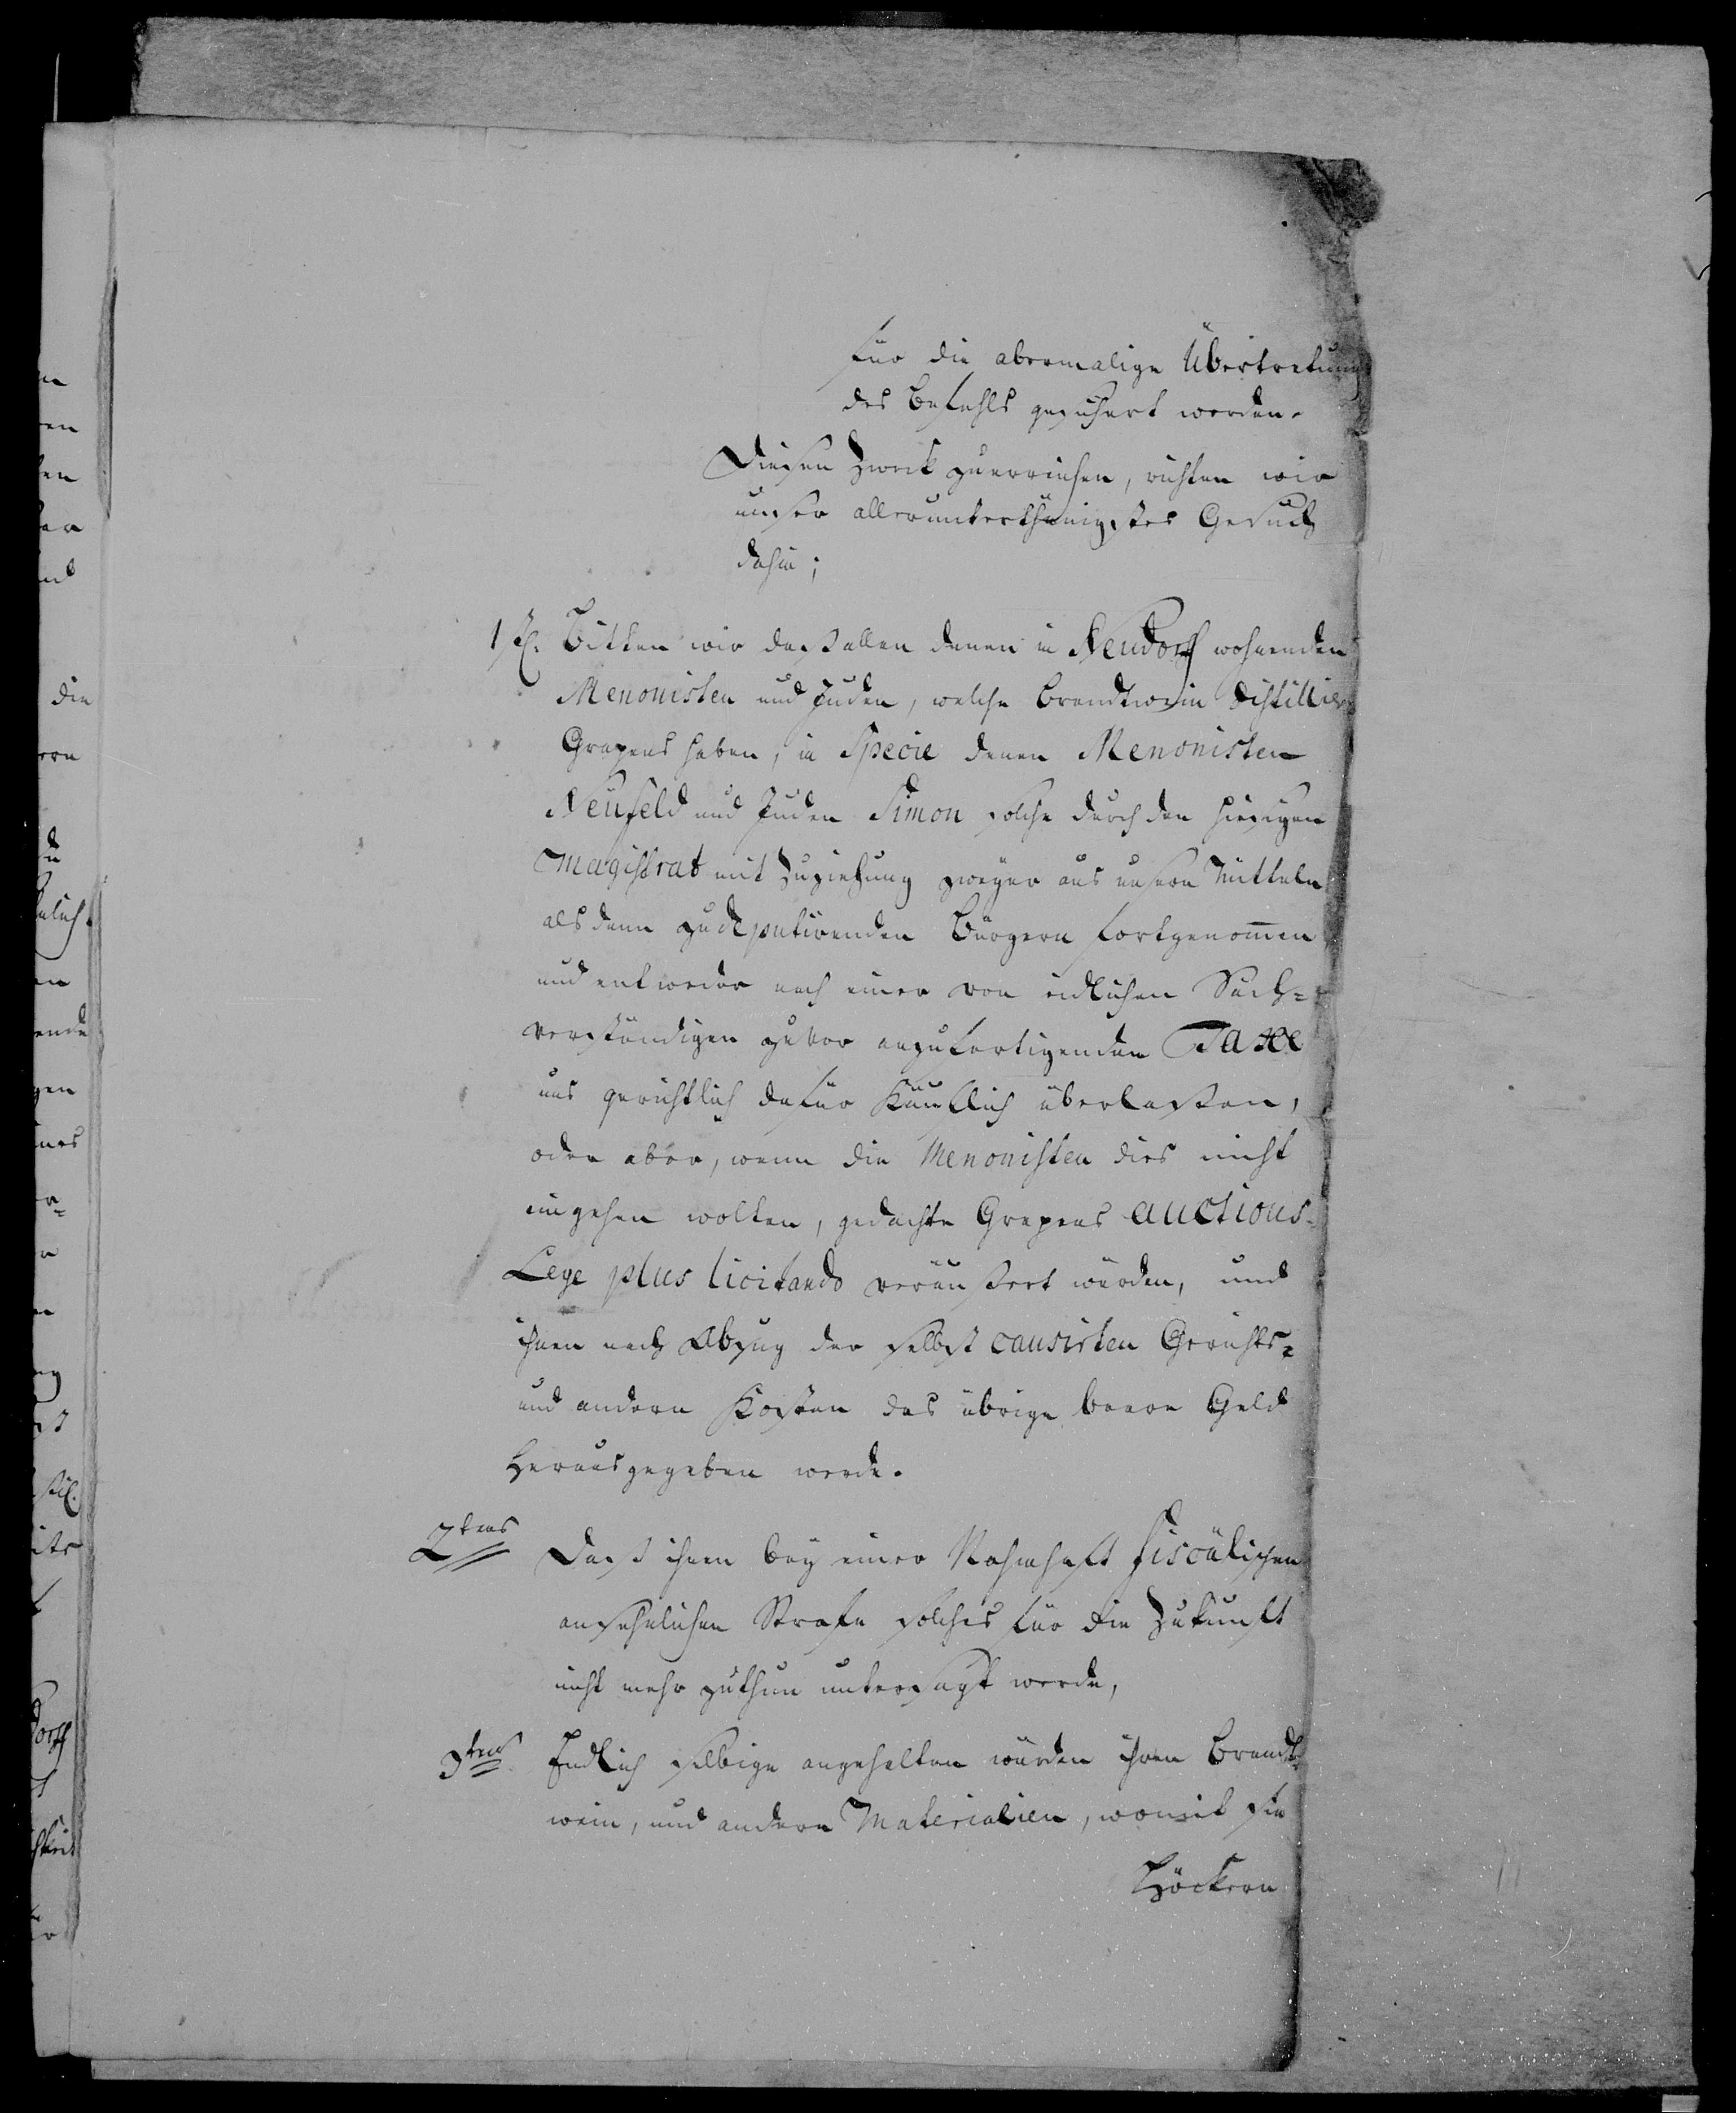 für die abermalige Übertretung
des Befehls gesichert werden.
Diesen Zweck zuerreichen, richten wir
unser allerunterthänigstes Gesuch
dahin;
1st. Bitten wir daß allen denen in Neudorff wohnenden
Menonisten und Juden, welche Brandtwein Distillir
Grapens haben, in Specie denen Menonisten
Neufeld und Juden Simon solche durch den hiesigen
Magistrat mit Zuziehung zweyer aus unsern Mitteln
als dann zu deputirenden Bürgern fortgenommen
und entweder nach einer von eidlichen Sach-
verständigen zuvor anzufertigenden Taxe
uns gerichtlich dafür Käuflich überlaßen,
oder aber, wenn die Menonisten dies nicht
eingehen wolten, gedachte Grapens auctions-
Lege plus licitando veräußert würden, und
ihnen nach Abzug der selbst causirten Gerichts-
und andern Kosten das übrige baare Geld
Herausgegeben werde.
2tens Daß ihnen bey einer Nahmhaft fiscälischen
ansehnlichen Strafe solches für die Zukunft
nicht mehr zuthun untersagt werde,
3tens Endlich selbige angehalten würden ihren Brandt-
wein, und andere Materialien, womit sie
Höckern